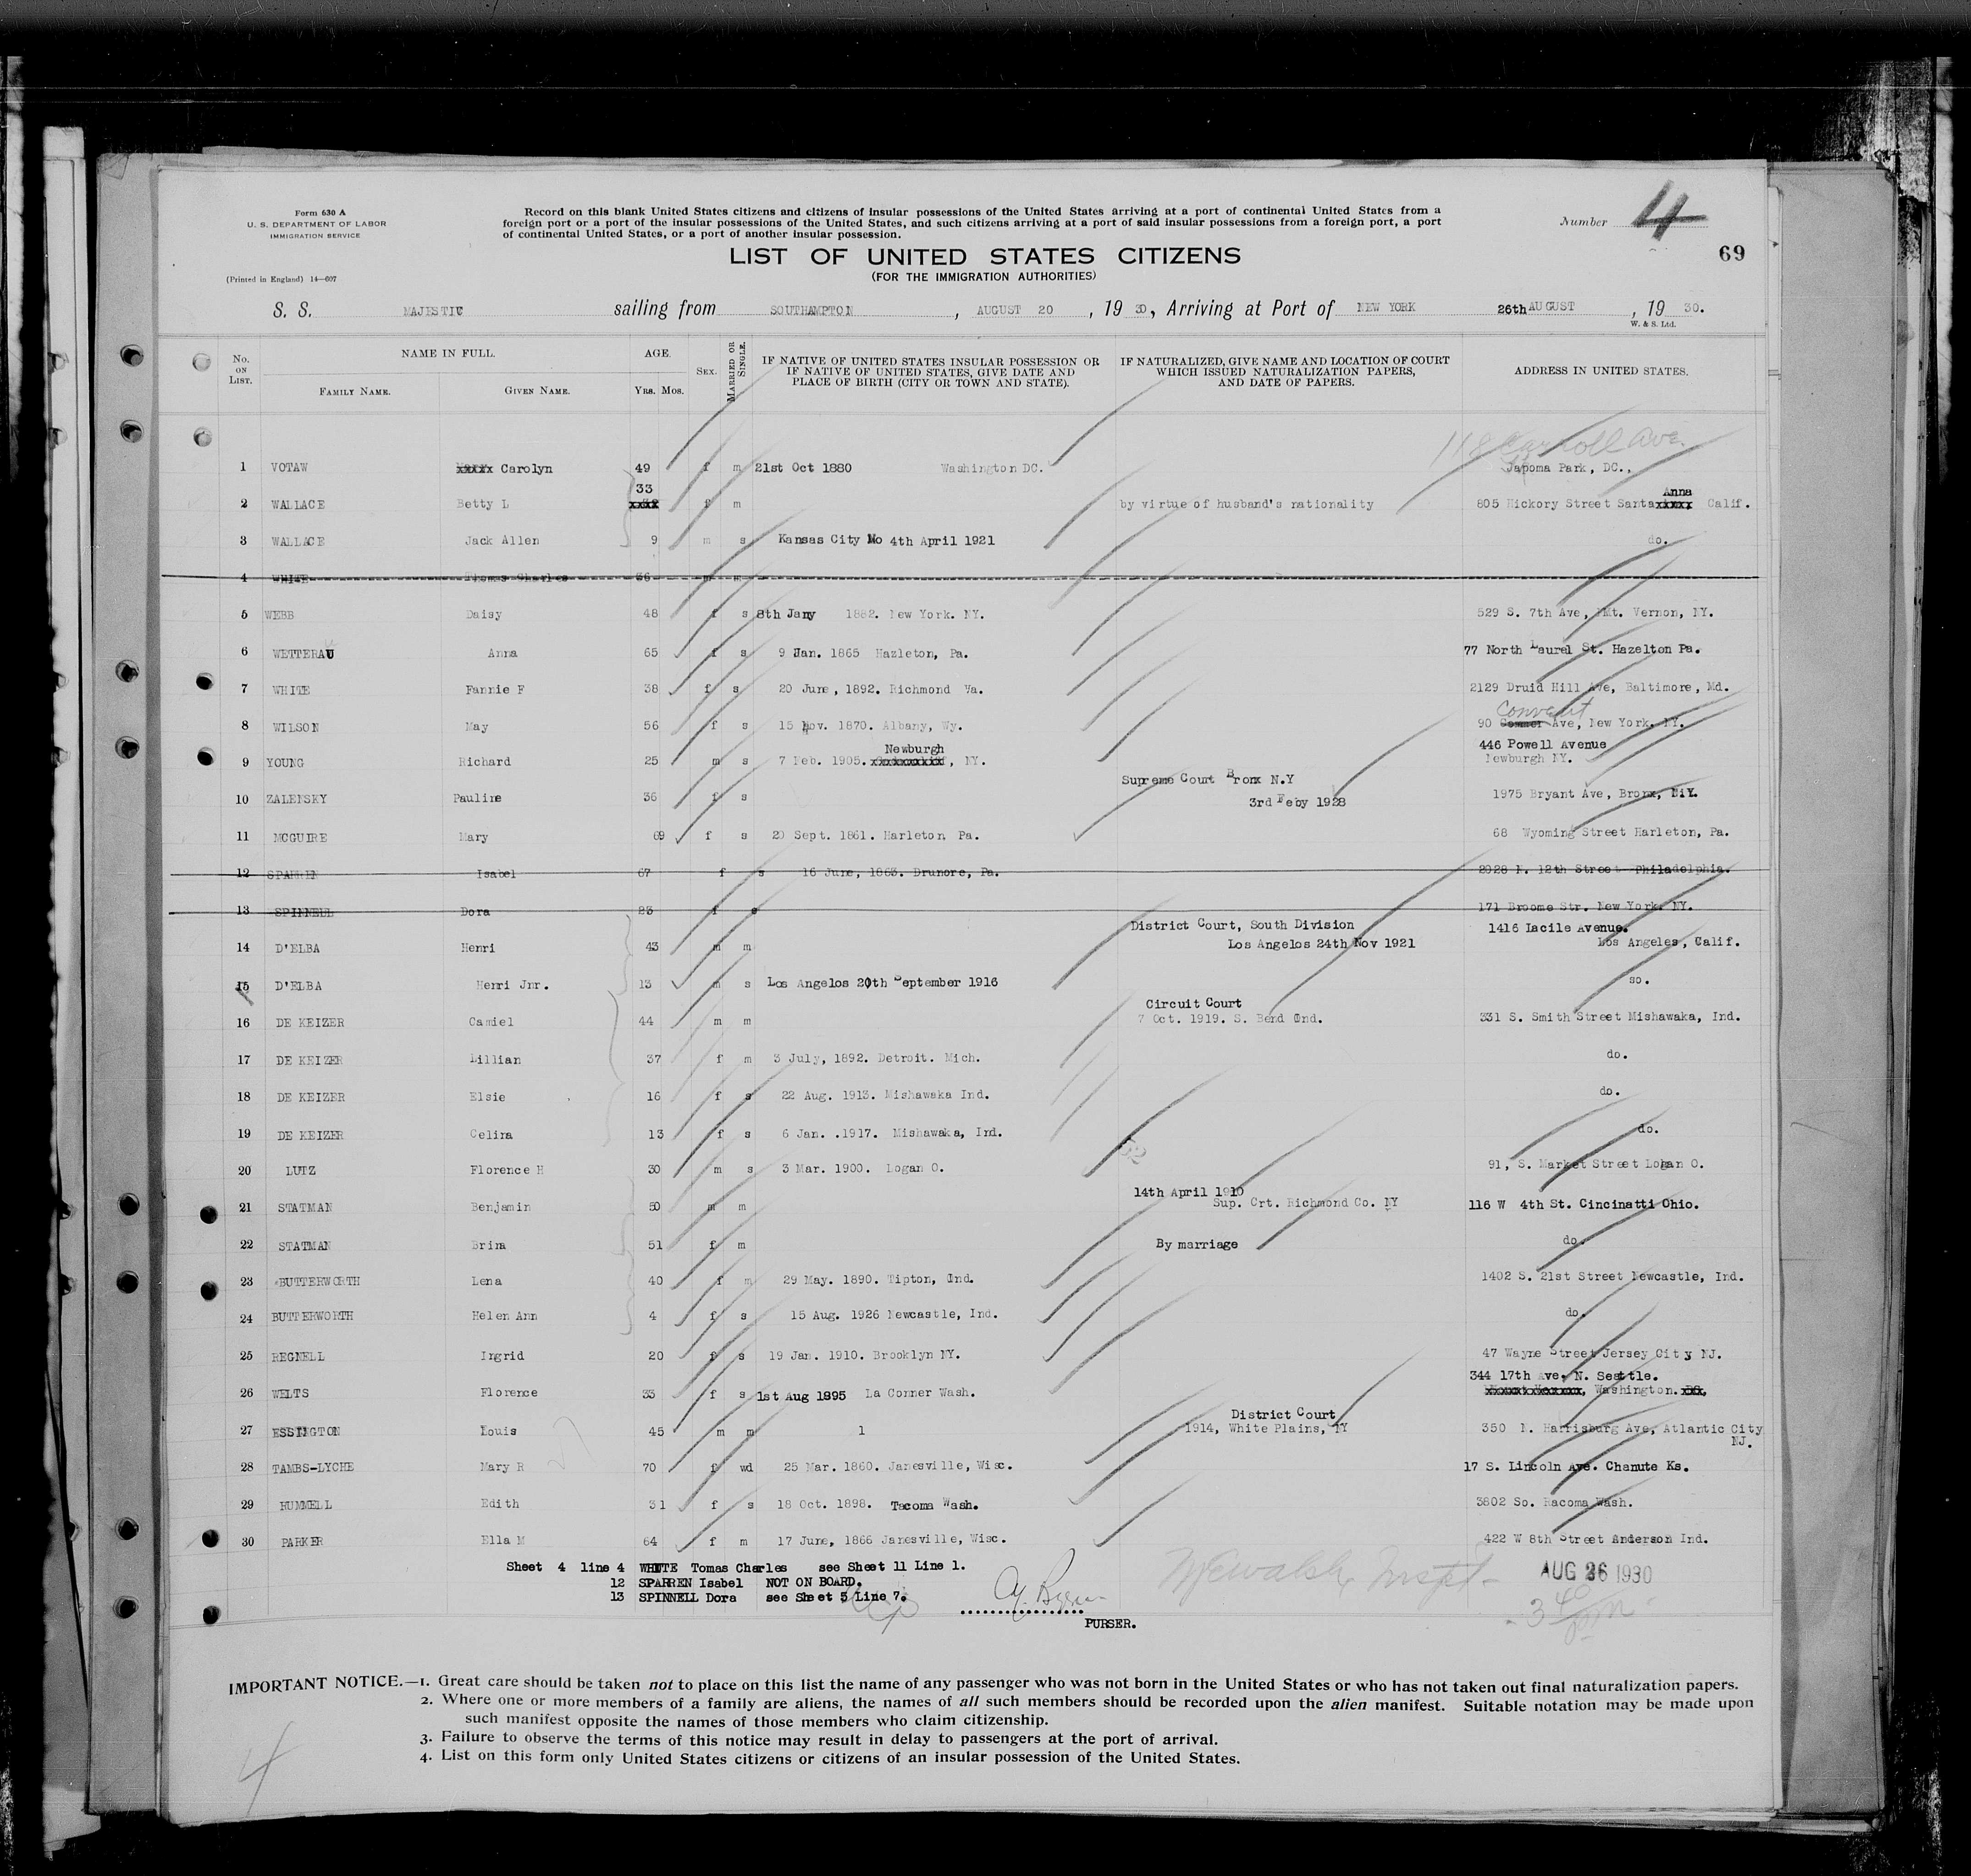 Form 630 A
U. S. DEPARTMENT OF LABOR
IMMIGRATION SERVICE
(Printed in England) 14—607
Record on this blank United States citizens and citizens of insular possessions of the United States arriving at a port of continental United States from a
foreign port or a port of the insular possessions of the United States, and such citizens arriving at a port of said insular possessions from a foreign port, a port
of continental United States, or a port of another insular possession.
Number 4
69
LIST OF UNITED STATES CITIZENS
(FOR THE IMMIGRATION AUTHORITIES)
S. S. MAJESTIC sailing from SOUTHAMPTON, AUGUST 20, 19 30, Arriving at Port of NEW YORK 26th AUGUST, 19 30.
W. & S. Ltd.
No. ON LIST. NAME IN FULL. FAMILY NAME. GIVEN NAME. AGE. YRS. MOS. SEX. MARRIED OR SINGLE. IF NATIVE OF UNITED STATES INSULAR POSSESSION OR IF NATIVE OF UNITED STATES, GIVE DATE AND PLACE OF BIRTH (CITY OR TOWN AND STATE). IF NATURALIZED, GIVE NAME AND LOCATION OF COURT WHICH ISSUED NATURALIZATION PAPERS, AND DATE OF PAPERS. ADDRESS IN UNITED STATES.
118 Carroll Ave.
1 VOTAW xxxxx Carolyn 49 f m 21st Oct 1880 Washington DC. Japoma Park, DC.,
33 Anna
2 WALLACE Betty L f m by virtue of husband's nationality 805 Hickory Street Santa xxxxx Calif.
3 WALLACE Jack Allen 9 m s Kansas City Mo 4th April 1921 do.
4 WHITE Thomas Charles 36 m m
5 WEBB Daisy 48 f s 8th Jany 1882. New York. NY. 529 S. 7th Ave, Mt. Vernon, NY.
6 WETTERAU Anna 65 f s 9 Jan. 1865 Hazleton, Pa. 77 North Laurel St. Hazelton Pa.
7 WHITE Fannie F 38 f s 20 June, 1892. Richmond Va. 2129 Druid Hill Ave, Baltimore, Md.
Convent
8 WILSON May 56 f s 15 Nov. 1870. Albany, Wy. 90 Ave, New York. NY.
Newburgh 446 Powell Avenue
9 YOUNG Richard 25 m s 7 Feb. 1905. , NY. Newburgh NY.
Supreme Court Bronx N.Y
10 ZALENSKY Pauline 36 f s 3rd Feby 1928 1975 Bryant Ave, Bronx, NY.
11 MCGUIRE Mary 69 f s 20 Sept. 1861. Harleton Pa. 68 Wyoming Street Harleton, Pa.
12 SPARREN Isabel 67 f s 16 June, 1863. Drumore, Pa. 2028 N. 12th Street Philadelphia.
13 SPINNELL Dora 23 f s 171 Broome Str. New York. NY.
District Court, South Division 1416 Lacile Avenue.
14 D'ELBA Henri 43 m m Los Angelos 24th Nov 1921 Los Angeles, Calif.
15 D'ELBA Henri Jnr. 13 m s Los Angelos 20th September 1916 so.
Circuit Court
16 DE KEIZER Camiel 44 m m 7 Oct. 1919. S. Bend Ind. 331 S. Smith Street Mishawaka, Ind.
17 DE KEIZER Lillian 37 f m 3 July, 1892. Detroit. Mich. do.
18 DE KEIZER Elsie 16 f s 22 Aug. 1913. Mishawaka Ind. do.
19 DE KEIZER Celina 13 f s 6 Jan. .1917. Mishawaka, Ind. do.
20 LUTZ Florence H 30 m s 3 Mar. 1900. Logan O. 91, S. Market Street Logan O.
14th April 1910
21 STATMAN Benjamin 50 m m Sup. Crt. Richmond Co. NY 116 W 4th St. Cincinatti Ohio.
22 STATMAN Brina 51 f m By marriage do.
23 BUTTERWORTH Lena 40 f m 29 May. 1890. Tipton, Ind. 1402 S. 21st Street Newcastle, Ind.
24 BUTTERWORTH Helen Ann 4 f s 15 Aug. 1926 Newcastle, Ind. do.
25 REGNELL Ingrid 20 f s 19 Jan. 1910. Brooklyn NY. 47 Wayne Street Jersey City NJ.
344 17th Ave. N. Seattle.
26 WELTS Florence 33 f s 1st Aug 1895 La Conner Wash. Washington.
District Court
27 ESSINGTON Louis 45 m m 1 1914, White Plains, NY 350 N. Harrisburg Ave, Atlantic City
NJ.
28 TAMBS-LYCHE Mary R 70 f wd 25 Mar. 1860. Janesville, Wisc. 17 S. Lincoln Ave. Chanute Ks.
29 HUMMELL Edith 31 f s 18 Oct. 1898. Tacoma Wash. 3802 So. Racoma Wash.
30 PARKER Ella M 64 f m 17 June, 1866 Janesville, Wisc. 422 W 8th Street Anderson Ind.
Sheet 4 line 4 WHITE Tomas Charles see Sheet 11 Line 1.
12 SPARREN Isabel NOT ON BOARD.
13 SPINNELL Dora see Sheet 5 Line 7.
PURSER.
AUG 26 1930
3 40 pm
IMPORTANT NOTICE.—1. Great care should be taken not to place on this list the name of any passenger who was not born in the United States or who has not taken out final naturalization papers.
2. Where one or more members of a family are aliens, the names of all such members should be recorded upon the alien manifest. Suitable notation may be made upon
such manifest opposite the names of those members who claim citizenship.
3. Failure to observe the terms of this notice may result in delay to passengers at the port of arrival.
4. List on this form only United States citizens or citizens of an insular possession of the United States.
4